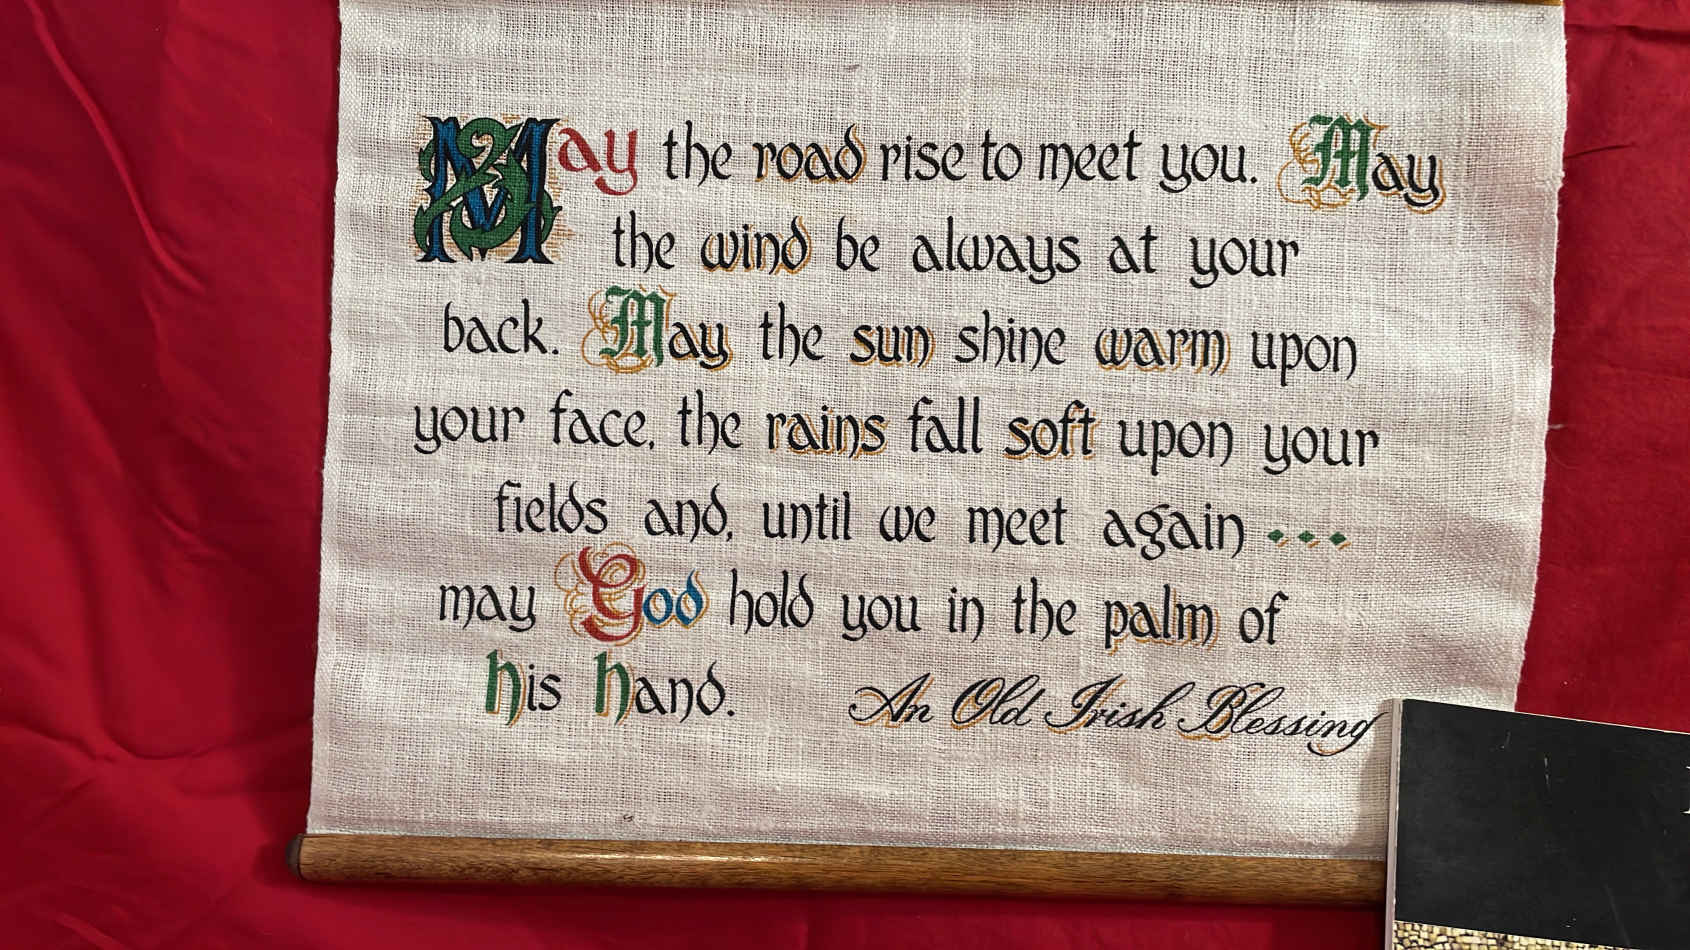 May the road rise to meet you. May
the wind be always at your
back. May the sun shine warm upon
your face, the rains fall soft upon your
fields and, until we meet again ...
may God hold you in the palm of
his hand.
An Old Irish Blessing